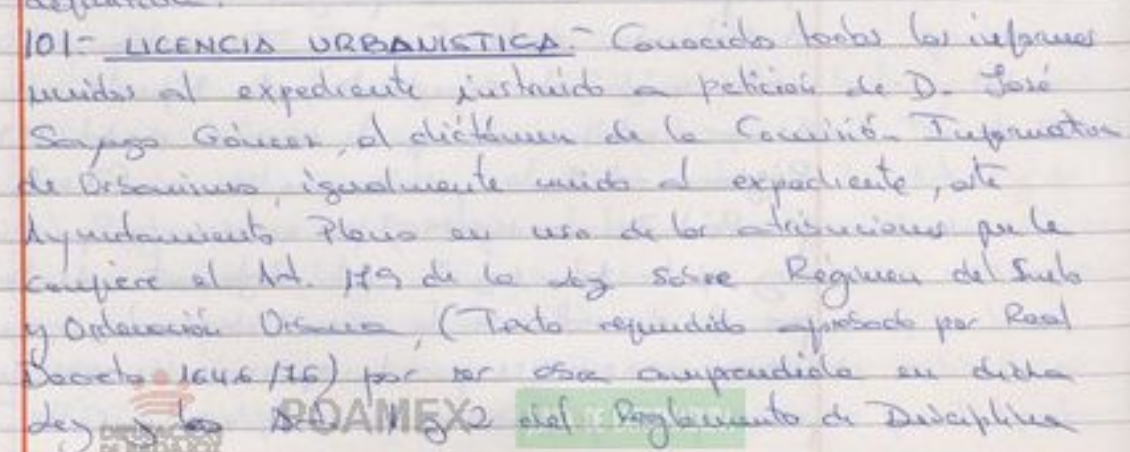 definitiva.
101- LICENCIA URBANISTICA.- Conocidos todos los informes
unidos al expediente instruido a petición de D. José
Sayago Gómez, el dictámen de la Comisión Informativa
de Urbanismo, igualmente unido al expediente, este
Ayuntamiento Pleno en uso de las atribuciones que le
confiere el Art. 179 de la Ley sobre Régimen del Suelo
y Ordenación Urbana, (Texto refundido aprobado por Real
Decreto 1646/76) por ser obra comprendida en dicha
Ley y los Art. 1 y 2 del Reglamento de Disciplina
ROAMEX